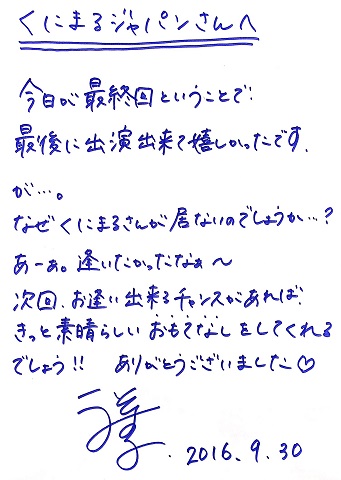 くにまるジャパンさんへ
今日が最終回ということで!
最後に出演出来て嬉しかったです.
が…。
なぜくにまるさんが居ないのでしょうか…?
あーぁ。逢いたかったなぁ〜
次回、お逢い出来るチャンスがあれば、
きっと素晴らしいおもてなしをしてくれる
でしょう!! ありがとうございました♡
2016.9.30